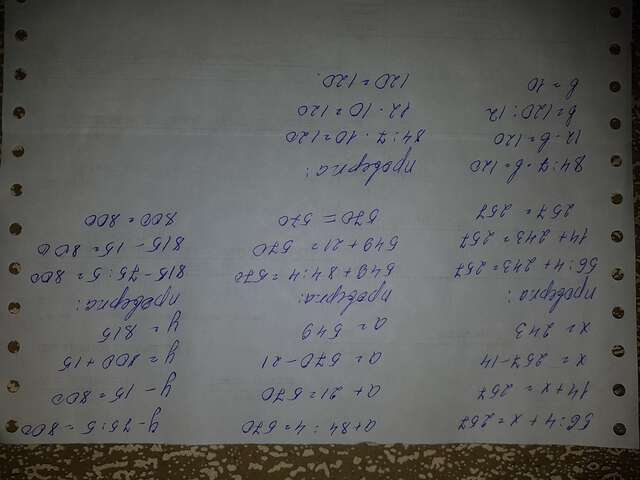 56:4+x=257
14+x=257
x=257-14
x=243
проверка:
56:4+243=257
14+243=257
257=257
a+84:4=570
a+21=570
a=570-21
a=549
проверка:
549+84:4=570
549+21=570
570=570
y-75:5=800
y-15=800
y=800+15
y=815
проверка:
815-75:5=800
815-15=800
800=800
84:7·b=120
12·b=120
b=120:12
b=10
проверка:
84:7·10=120
12·10=120
120=120.